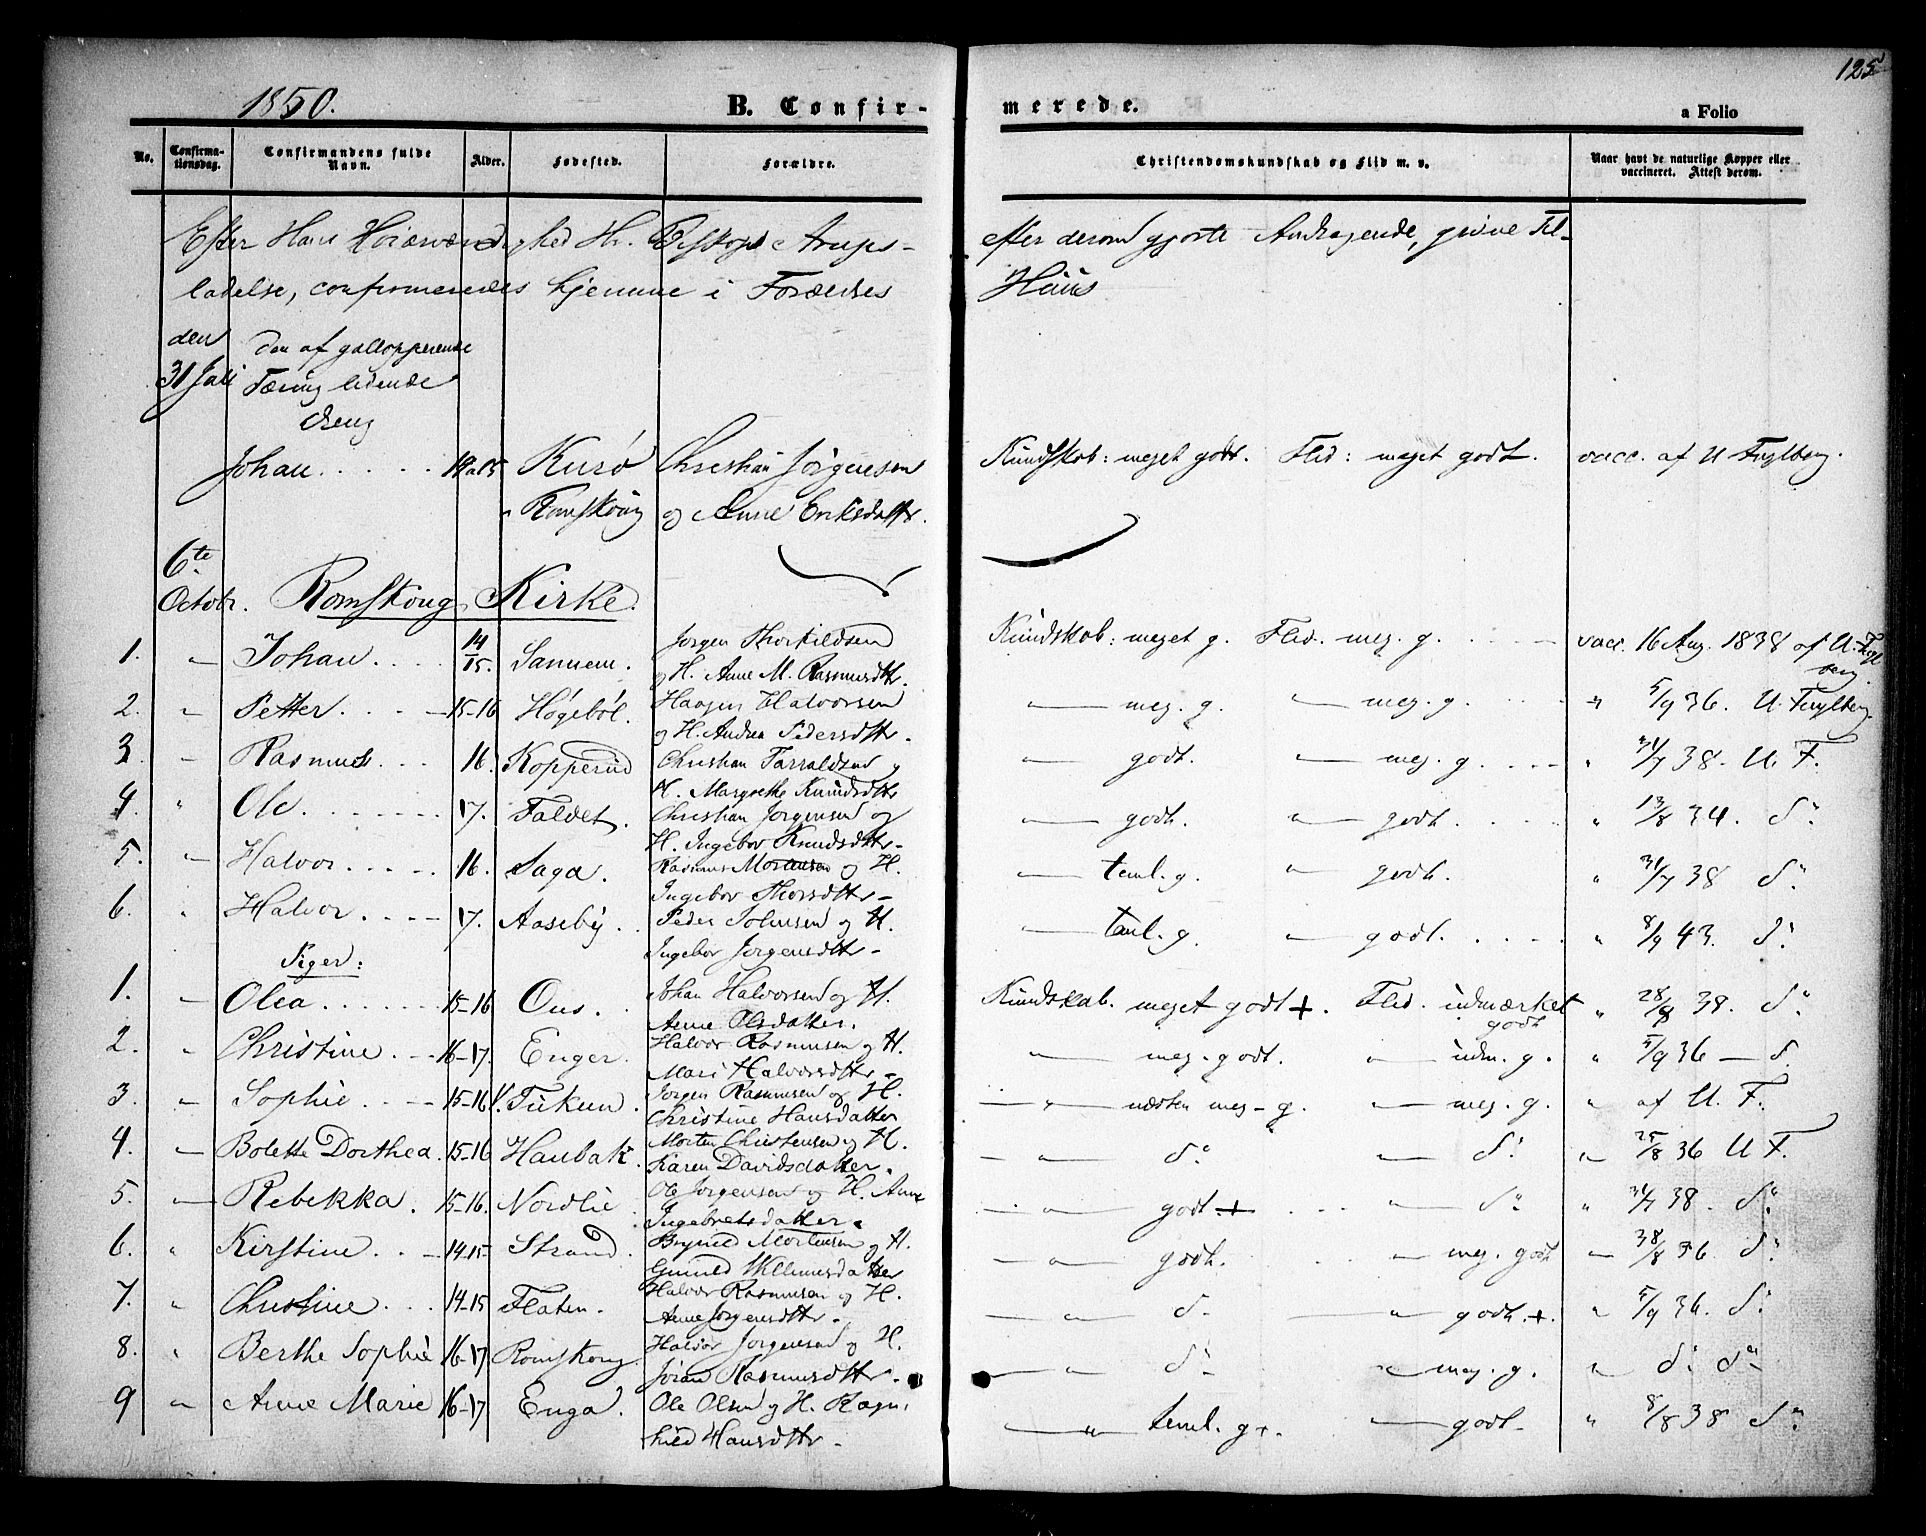 125
1850. B. Confir- merede. a Folio
No. Confirma- tionsdag. Confirmandens fulde Navn. Alder. Fødested. Forældre. Christendomskundskab og Flid m. v. Naar havt de naturlige Kopper eller vaccineret. Attest derom.
Efter Hans Høiærværdighed Hr. Biskop Arups efter derom gjorte Andragende, givne Til-
ladelse, confirmeredes hjemme i Forældres Huus
den 31 Juli
Den af gallopperende
Tæring lidende
Dreng
Johan. 14 a 15 Kurø Christian Jørgensen Kundskab: meget godt. Flid: meget godt. vacc. af U Fuglberg.
Romskoug og Anne Eriksdattr.
6te
Octobr. Romskoug Kirke.
1. " Johan. 14/15. Sannem. Jørgen Thorkildsen Kundskab: meget g. Flid. meg. g. vacc. 16 Aug. 1838 af U. Fuglberg.
og H. Anne M. Rasmusdtr.
2. " Petter. 15-16 Høgebøl. Haagen Halvorsen " meg. g. " meg. g. " 5/9 36. U. Fuglberg.
og H. Andrea Pedersdttr.
3. " Rasmus. 16. Kopperud Christian Tarraldsen og " godt. " meg. g. " 31/7 38. U. F.
H. Margrethe Knudsdttr
4. " Ole. 17. Faldet. Christian Jørgensen og " godt. " godt. " 13/8 34. do
H. Ingebor Knudsdttr.
5. " Halvor. 16. Saga. Rasmus Mortensen og H. " teml. g. " godt. " 31/7 38 do
Ingebor Thorsdttr.
6. " Halvor. 17. Aaseby. Peder Johnsen og H. " teml. g. " godt. " 8/9 43. do
Ingebor Jørgensdttr.
Piger:
1. " Olea. 15-16 Ous. Johan Halvorsen og H. Kundskab. meget godt +. Flid. udmærket godt " 28/8 38. do
Anne Olsdatter.
2. " Christine. 16-17. Enger. Halvor Rasmusen og H. " meg. godt. " udm. g. " 5/9 36 — d.
Mari Halvorsdttr.
3. " Sophie. 15-16 V. Tukun. Jørgen Rasmusen og H. " næsten meg. g. " meg. g. " af U. F.
Christine Hansdatter
4. " Bolette Dorthea. 15-16 Haubak. Morten Christensen og H. " do " do " 25/8 36 U F.
Karen Davidsdatter.
5. " Rebekka. 15-16. Nordlie. Ole Jørgensen og H. Anne " godt + " do " 31/7 38. do
Ingebretsdatter.
6. " Kirstine. 14-15 Strand. Brynild Mortensen og H. " godt. " meg. godt " 28/8 36. do
Gunild Willumsdatter
7. " Christine. 14-15 Flaten. Halvor Rasmusen og H. " do " godt. +. " 5/9 36. do
Anne Jørgensdttr.
8. " Berthe Sophie 16-17 Romskoug. Halvor Jørgensen og H. " do " meg. g. " do do
Jøran Rasmusdttr.
9 " Anne Marie 16-17 Enga. Ole Olsen og H. Ragn- " teml. g +. " godt. " 8/8 38 do
hild Hansdttr.